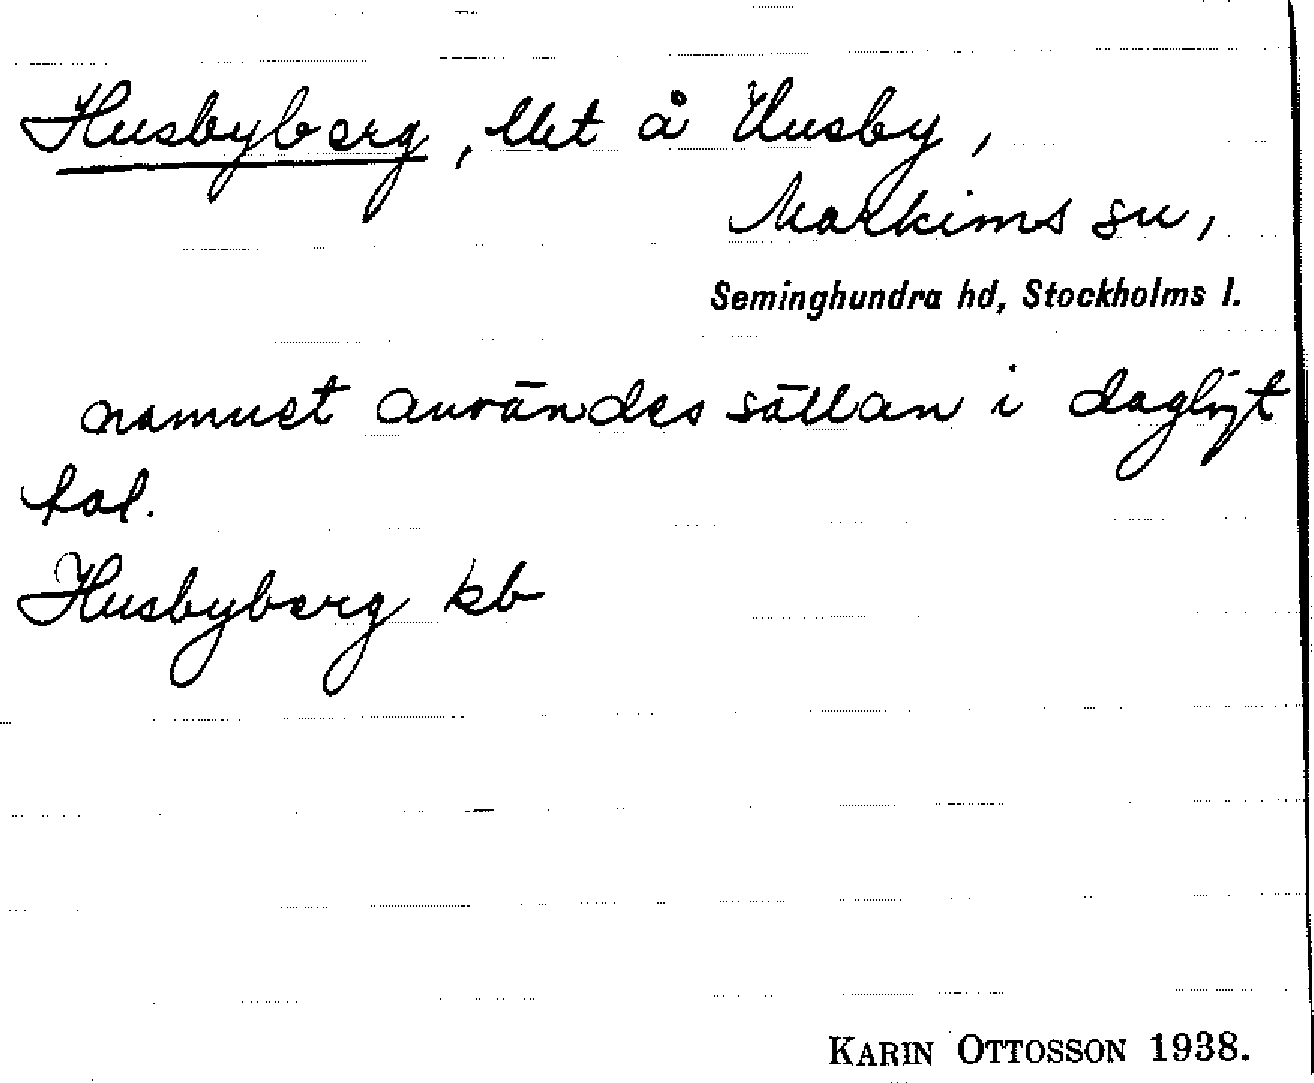 Husbyberg, lht å Husby,
Markims sn,
Seminghundra hd, Stockholms l.
namnet användes sällan i dagligt
tal.
Husbyberg kb
KARIN OTTOSSON 1938.